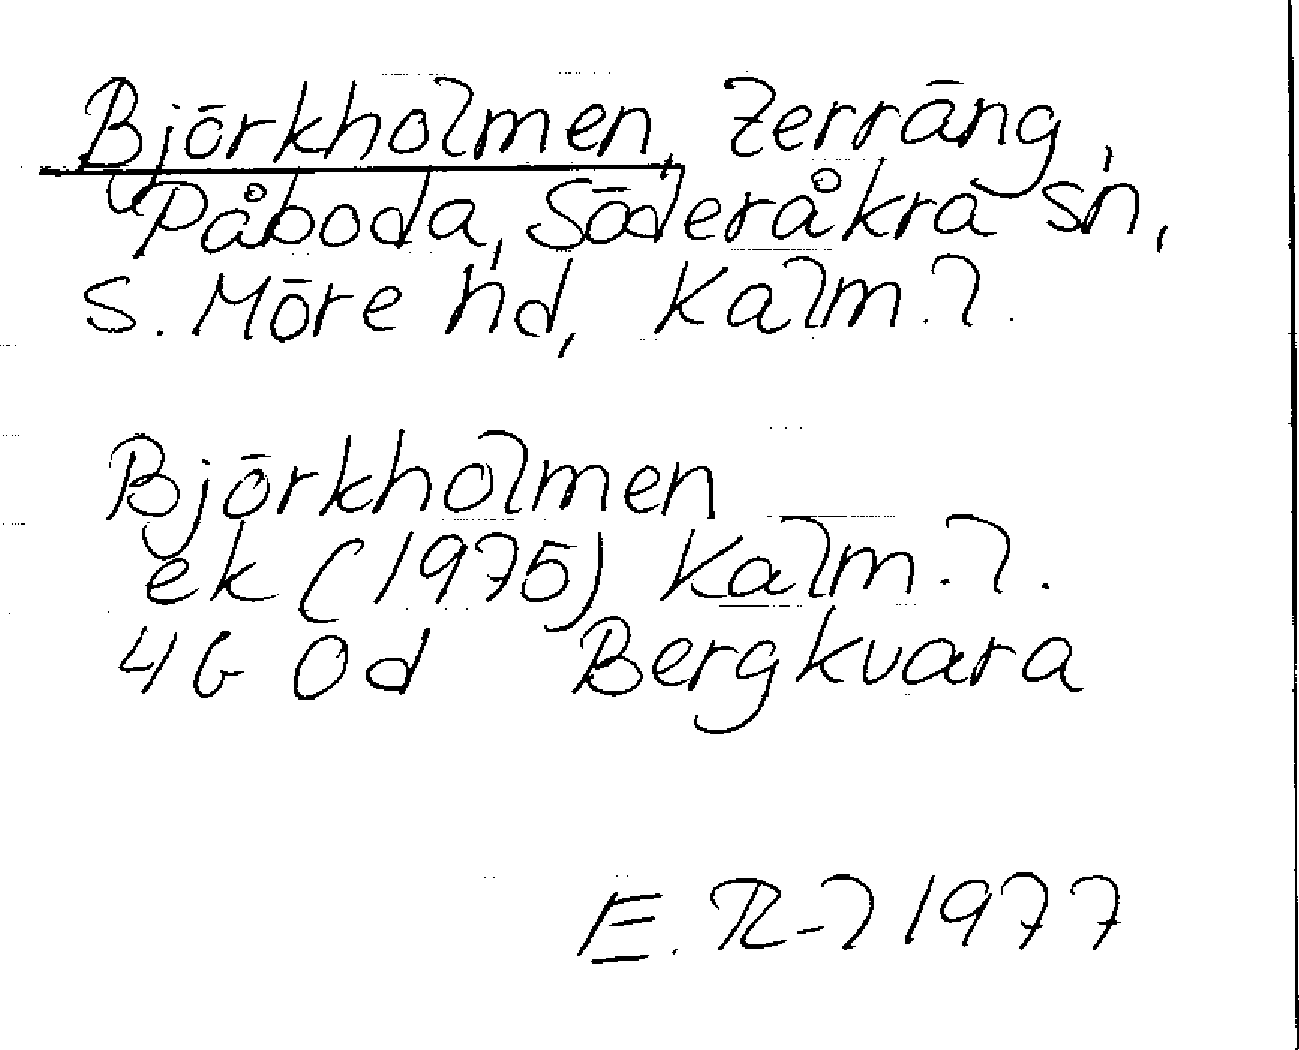 Björkholmen, terräng,
Påboda, Söderåkra sn,
S. Möre hd, Kalm. l.
Björkholmen
ek (1975) Kalm. l.
4G 0d Bergkvara
E. R-l 1977